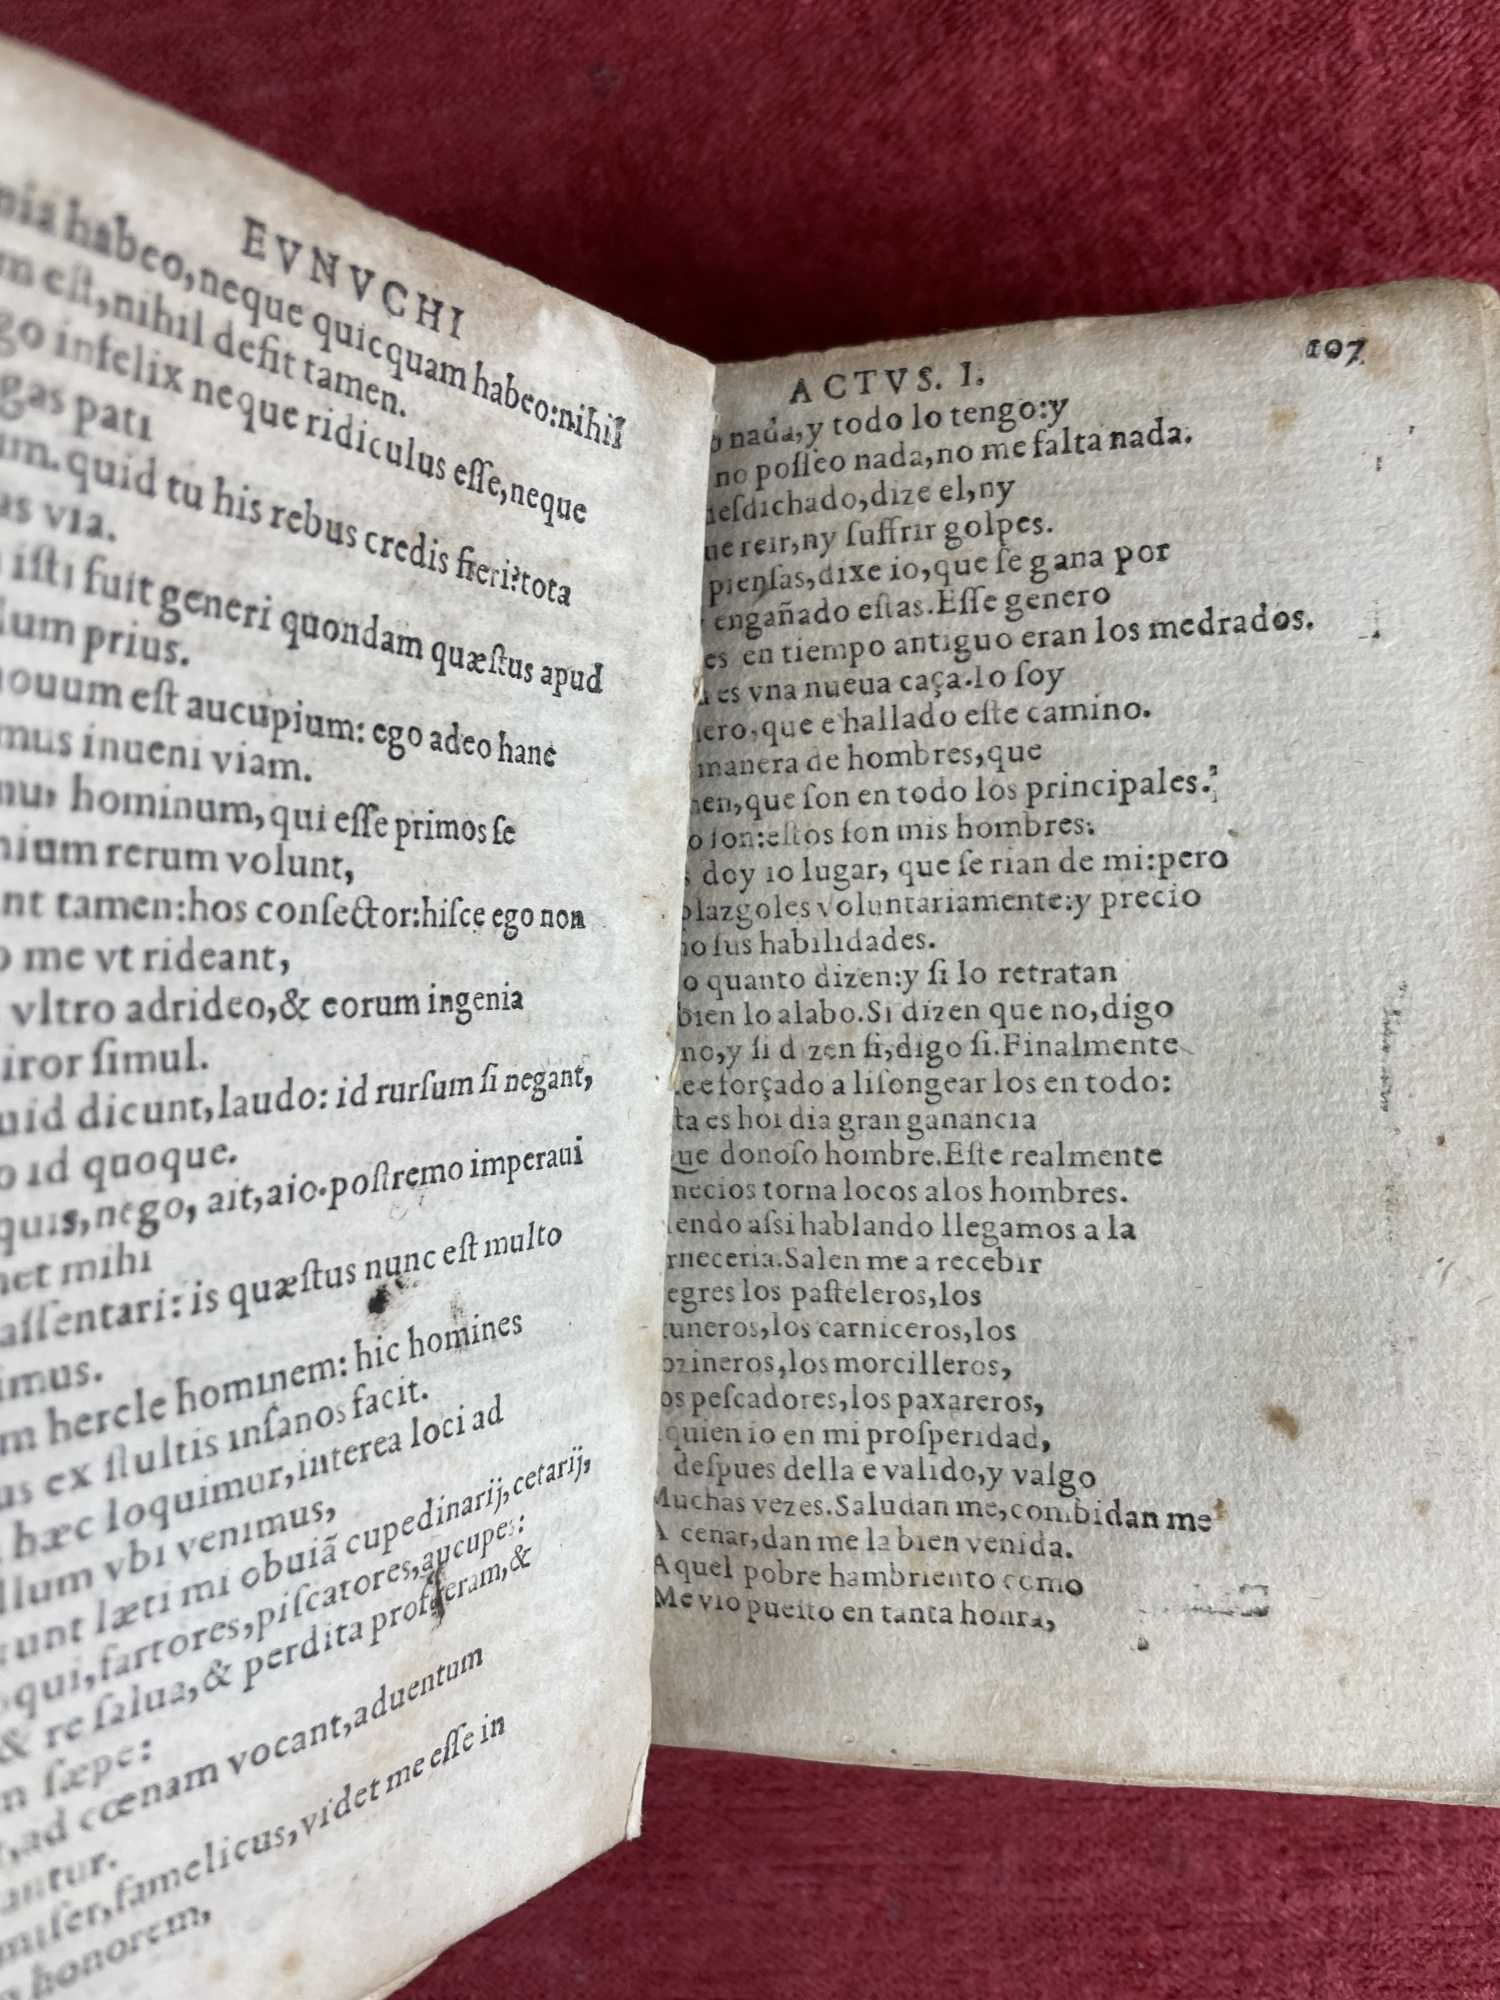 EVNVCHI
habeo,neque quicquam habeo:nihil
est,nihil defit tamen.
infelix neque ridiculus eſſe,neque
pati
quid tu his rebus credis fieri?tota
via.
iſti fuit generi quondam quæſtus apud
prius.
est aucupium: ego adeo hanc
inueni viam.
hominum,qui eſſe primos ſe
rerum volunt,
tamen:hos conſector:hiſce ego non
me vt rideant,
vltro adrideo,& eorum ingenia
ſimul.
dicunt,laudo: id rurſum ſi negant,
id quoque.
quis,nego, ait,aio.poſtremo imperaui
mihi
aſſentari: is quæſtus nunc eſt multo
hercle hominem: hic homines
ex ſtultis inſanos facit.
hæc loquimur,interea loci ad
vbi venimus,
læti mi obuiã cupedinarij,cetarij,
fartores,piſcatores,aucupes:
& re ſalua,& perdita profueram,&
ſæpe:
ad cœnam vocant,aduentum
famelicus,videt me eſſe in
honorem,
ACTVS. I. 107
nada,y todo lo tengo:y
no poſſeo nada,no me falta nada.
dize el,ny
reir,ny ſuffrir golpes.
pienſas,dixe io,que ſe gana por
engañado eſtas.Eſſe genero
en tiempo antiguo eran los medrados.
es vna nueua caça.Io ſoy
que e hallado eſte camino.
manera de hombres,que
que ſon en todo los principales.
ſon:eſtos ſon mis hombres.
doy io lugar, que ſe rian de mi:pero
voluntariamente:y precio
ſus habilidades.
quanto dizen:y ſi lo retratan
bien lo alabo.Si dizen que no,digo
no,y ſi d zen ſi,digo ſi.Finalmente
e forçado a liſongear los en todo:
es hoi dia gran ganancia
Que donoſo hombre.Eſte realmente
necios torna locos alos hombres.
aſsi hablando llegamos a la
Salen me a recebir
los paſteleros,los
los carniceros,los
los morcilleros,
peſcadores,los paxareros,
quien io en mi proſperidad,
deſpues della e valido,y valgo
Muchas vezes.Saludan me,combidan me
A cenar,dan me la bien venida.
Aquel pobre hambriento como
Me vio pueſto en tanta honra,